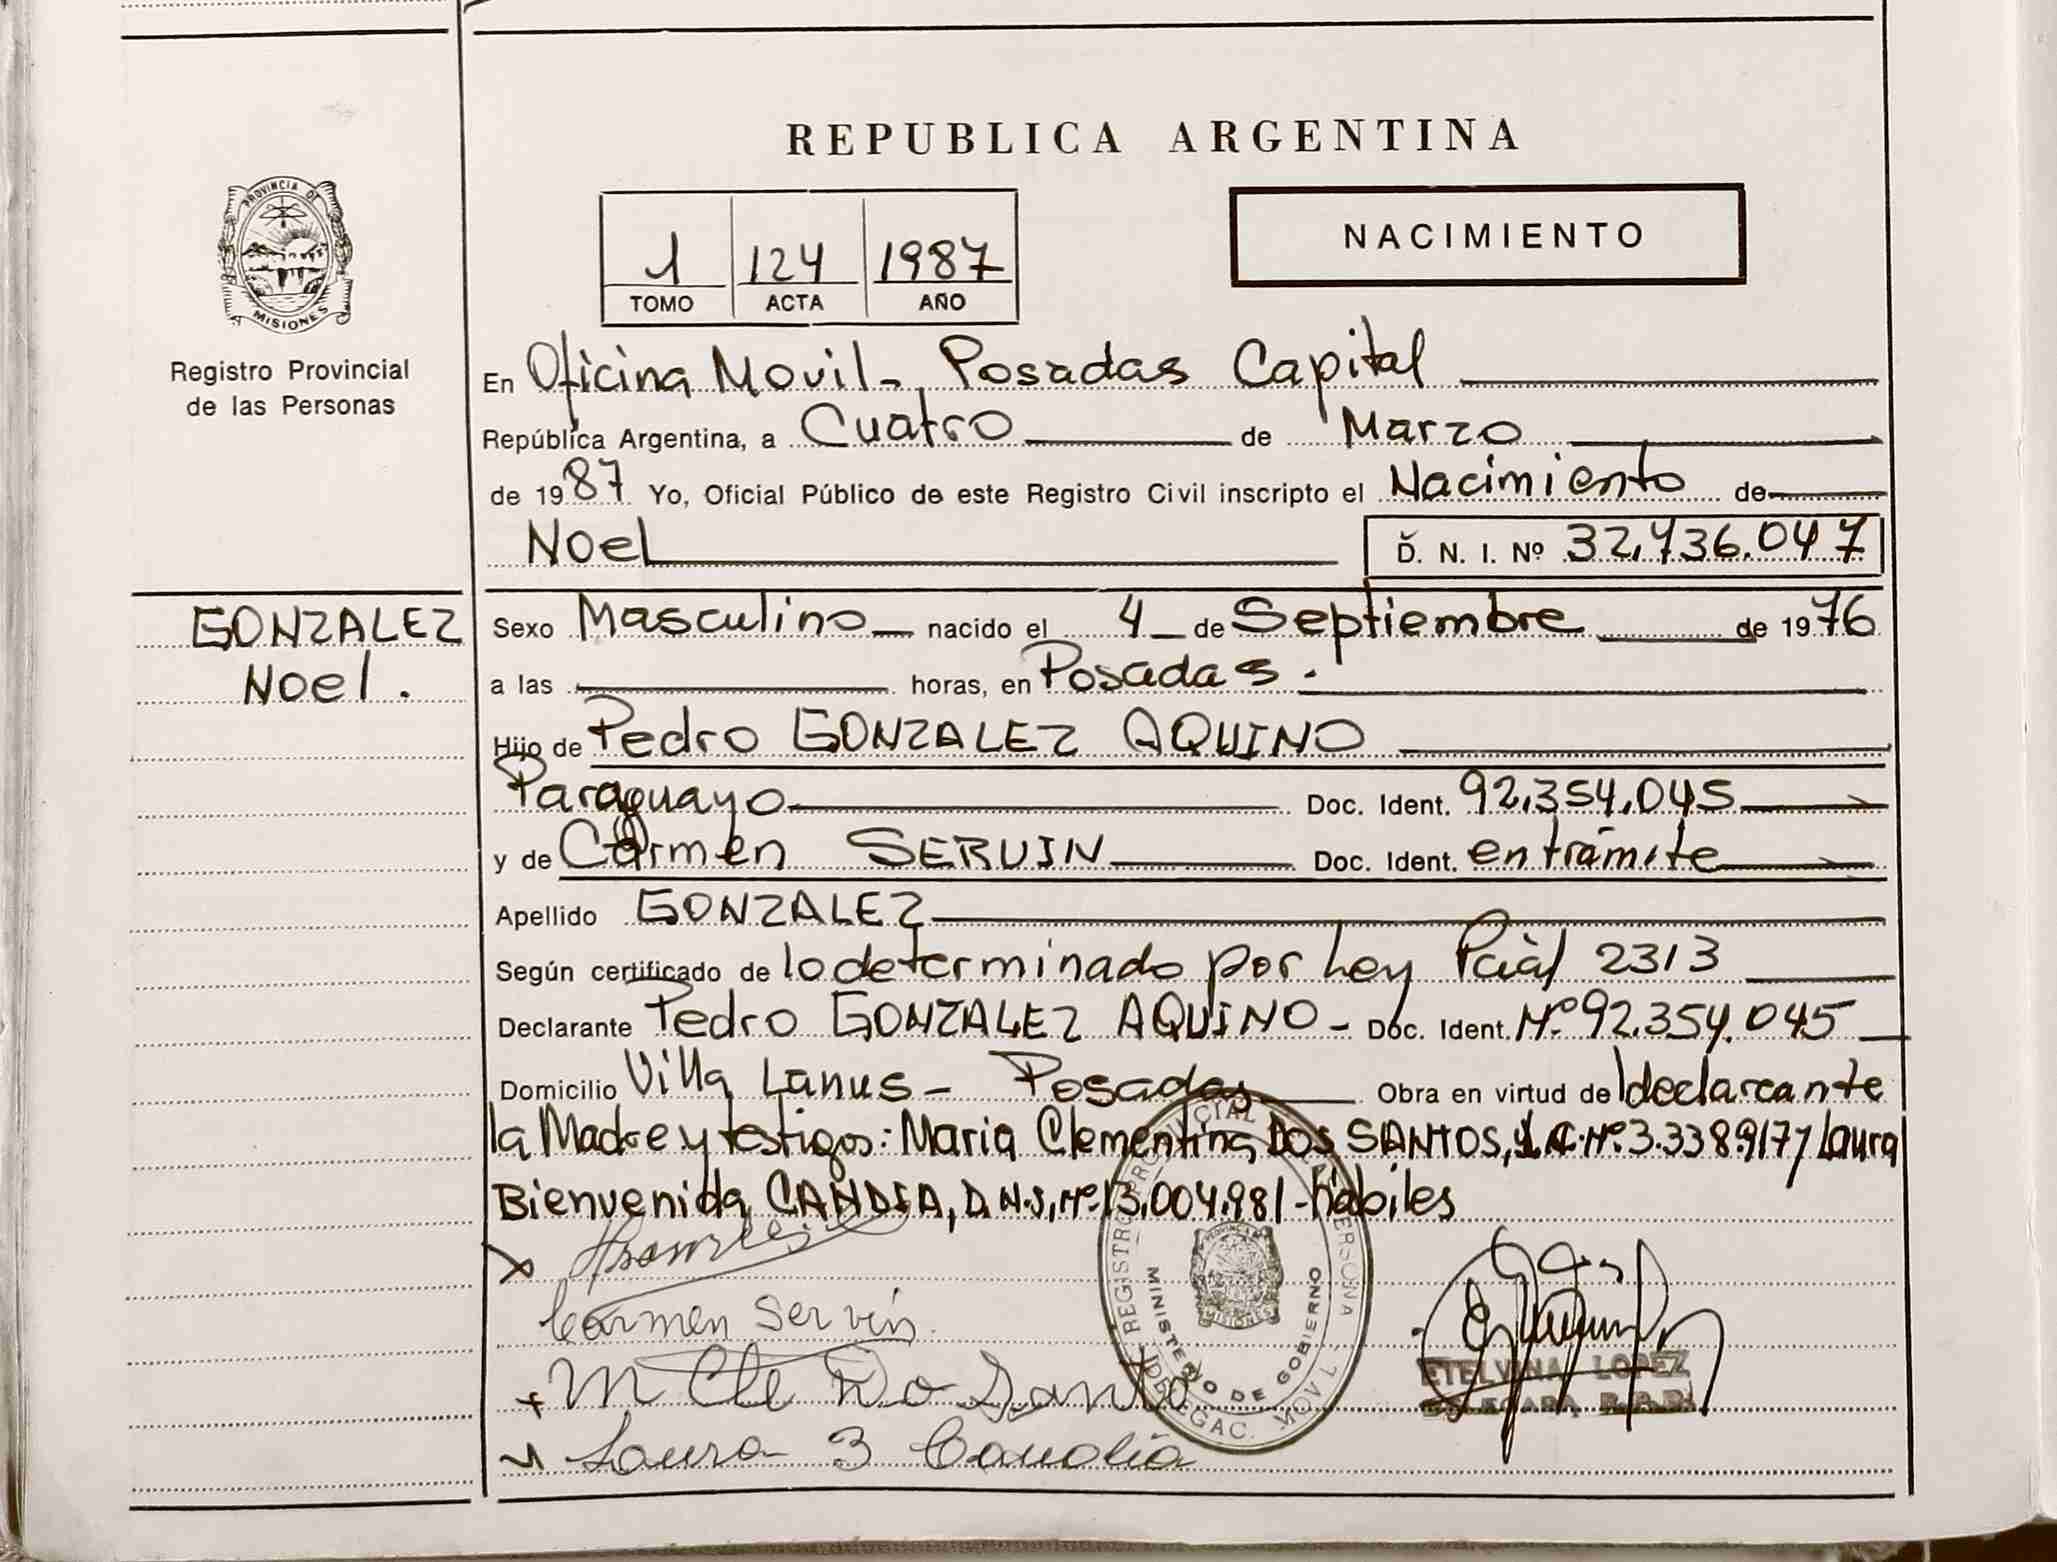 REPUBLICA ARGENTINA
PROVINCIA DE
MISIONES
Registro Provincial
de las Personas
1 124 1987
TOMO ACTA AÑO
NACIMIENTO
En Oficina Movil - Posadas Capital
República Argentina, a Cuatro de Marzo
de 1987 Yo, Oficial Público de este Registro Civil inscripto el Nacimiento de
Noel D. N. I. Nº 32.736.047
GONZALEZ
Noel.
Sexo Masculino nacido el 4 de Septiembre de 1976
a las horas, en Posadas.
Hijo de Pedro GONZALEZ AQUINO
Paraguayo Doc. Ident. 92.354.045
y de Carmen SERVIN Doc. Ident. en trámite
Apellido GONZALEZ
Según certificado de lo determinado por Ley Pcial 2313
Declarante Pedro GONZALEZ AQUINO - Doc. Ident. Nº 92.354.045
Domicilio Villa Lanus - Posadas Obra en virtud de declarante
la Madre y testigos: Maria Clementina DOS SANTOS, L.C. Nº 3.338.917 y Laura
Bienvenida CANDIA, D.N.I. Nº 13.004.981 - hábiles
Carmen Servin.
M Cle Do Santo
Laura B Candia
REGISTRO PROVINCIAL PERSONA
MINISTERIO DE GOBIERNO
DELEGAC. MOVIL
PROVINCIA DE
MISIONES
ETELVINA LOPEZ